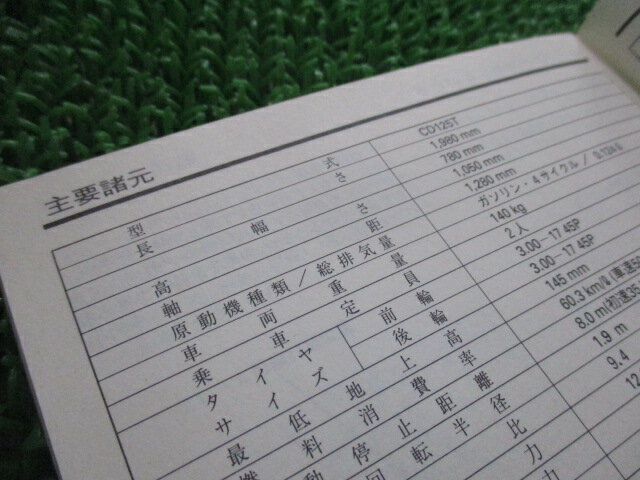 主要諸元
型式 CD125T
長さ 1,980 mm
幅 780 mm
高さ 1,050 mm
軸距 1,280 mm
原動機種類／総排気量 ガソリン・4サイクル /
車両重量 140 kg
乗車定員 2人
タイヤサイズ 前輪 3.00-17 45P
後輪 3.00-17 45P
最低地上高 145 mm
燃料消費率 60.3 km/ℓ
制動停止距離 8.0 m(初速35
回転半径 1.9 m
比 9.4
力 12.
力